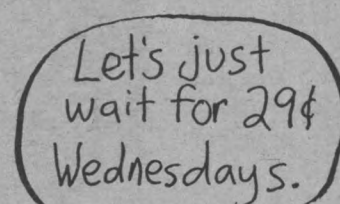 Let's just
wait for 29¢
Wednesdays.